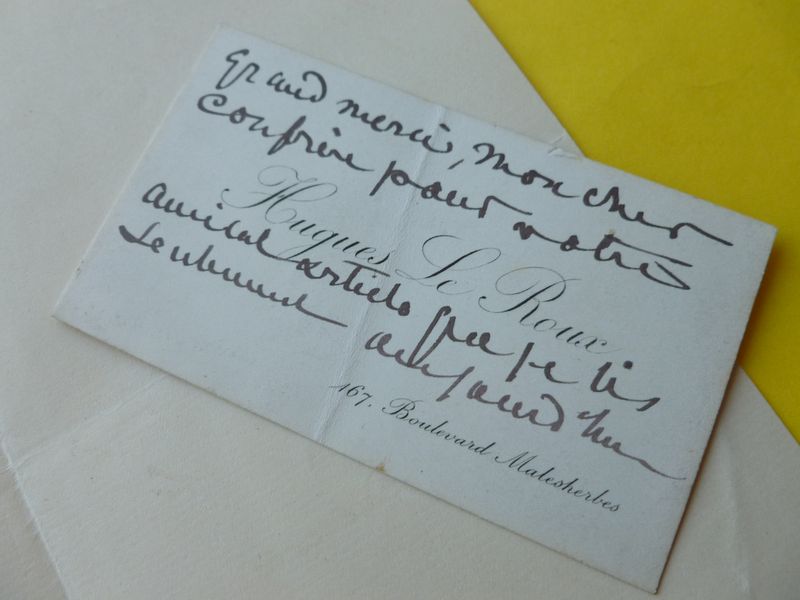 Grand merci, mon cher
confrère pour votre
Hugues Le Roux
amical article que je lis
seulement aujourd'hui
167, Boulevard Malesherbes